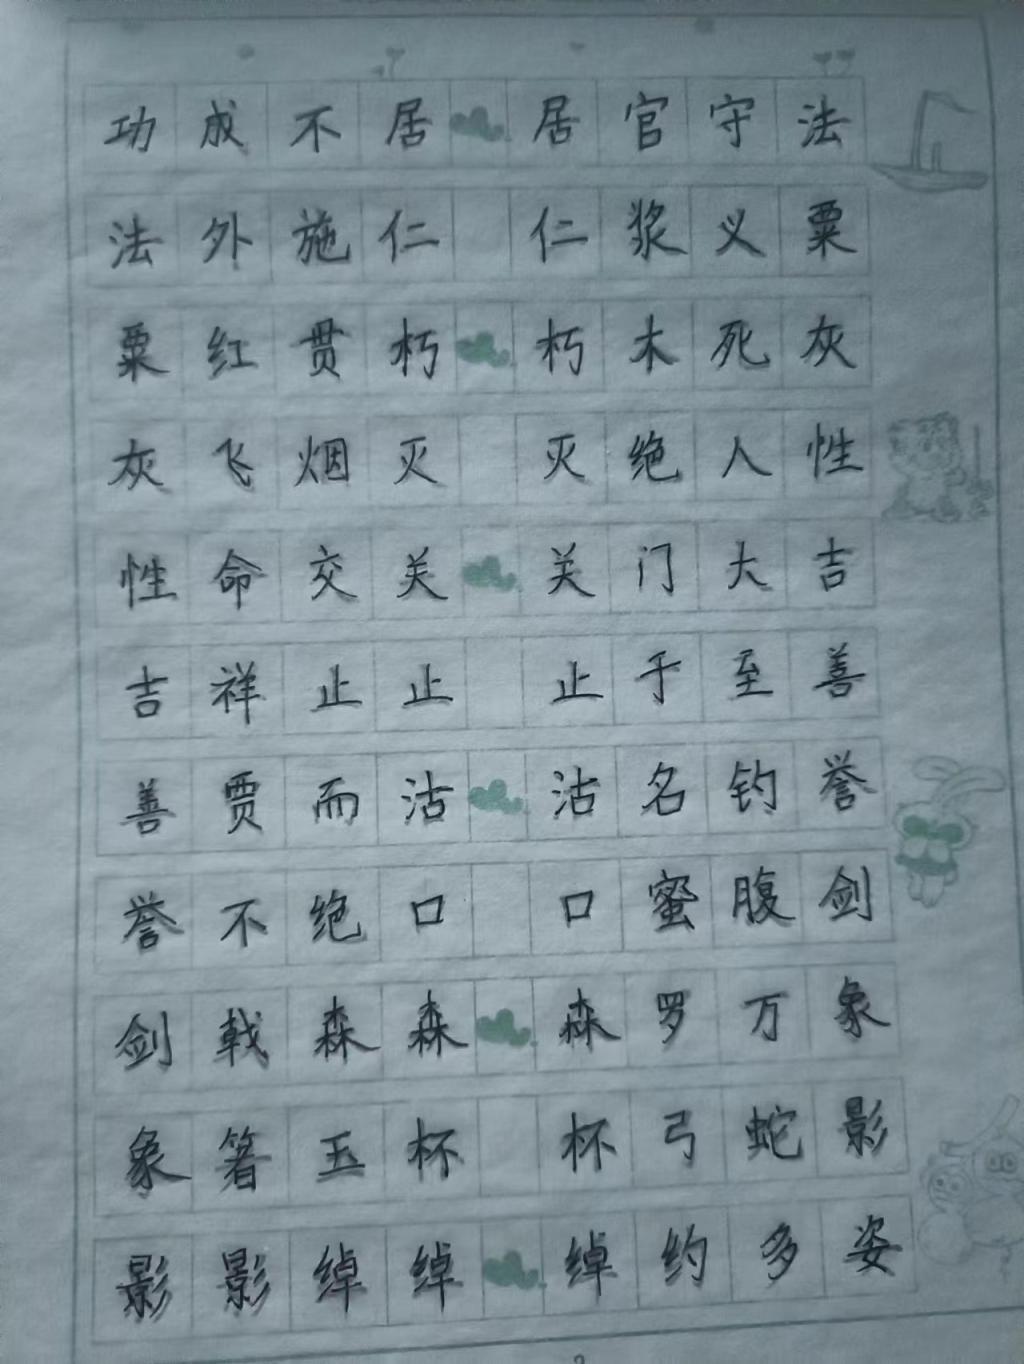 功成不居 居官守法
法外施仁 仁浆义粟
粟红贯朽 朽木死灰
灰飞烟灭 灭绝人性
性命交关 关门大吉
吉祥止止 止于至善
善贾而沽 沽名钓誉
誉不绝口 口蜜腹剑
剑戟森森 森罗万象
象箸玉杯 杯弓蛇影
影影绰绰 绰约多姿